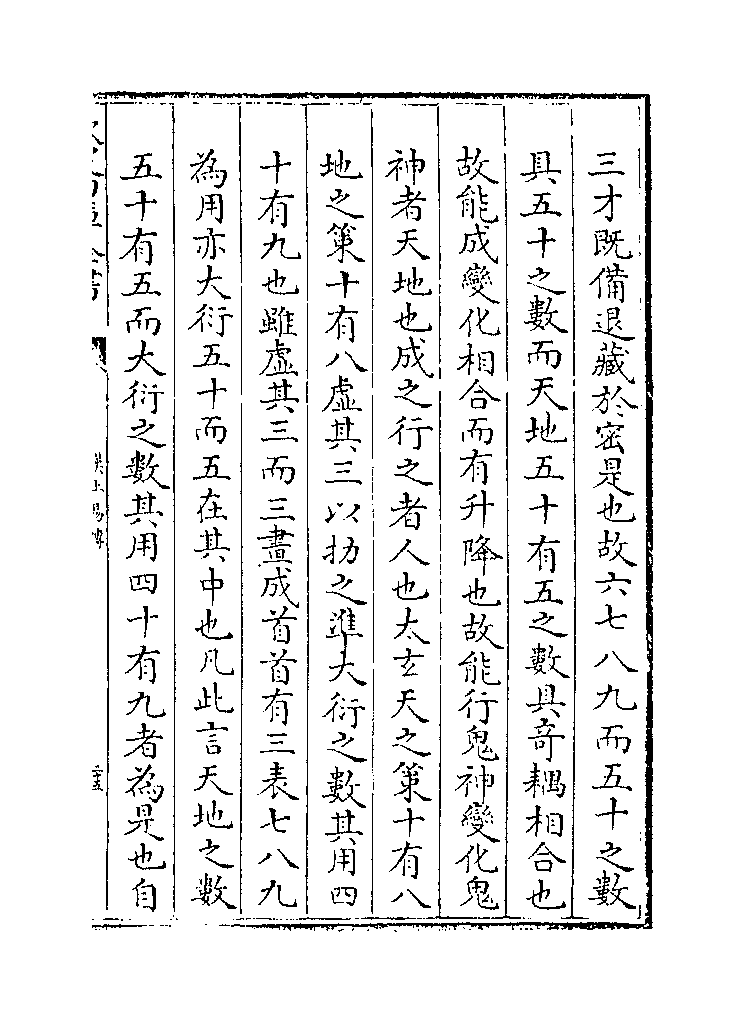 三才既備退藏於宻是也故六七八九而五十之數
具五十之數而天地五十有五之數具竒耦相合也
故能成變化相合而有升降也故能行鬼神變化鬼
神者天地也成之行之者人也太𤣥天之策十有八
地之策十有八虛其三以扐之準大衍之數其用四
十有九也雖虛其三而三畫成首首有三表七八九
為用亦大衍五十而五在其中也凡此言天地之數
五十有五而大衍之數其用四十有九者為是也自
漢上易傳
三十五